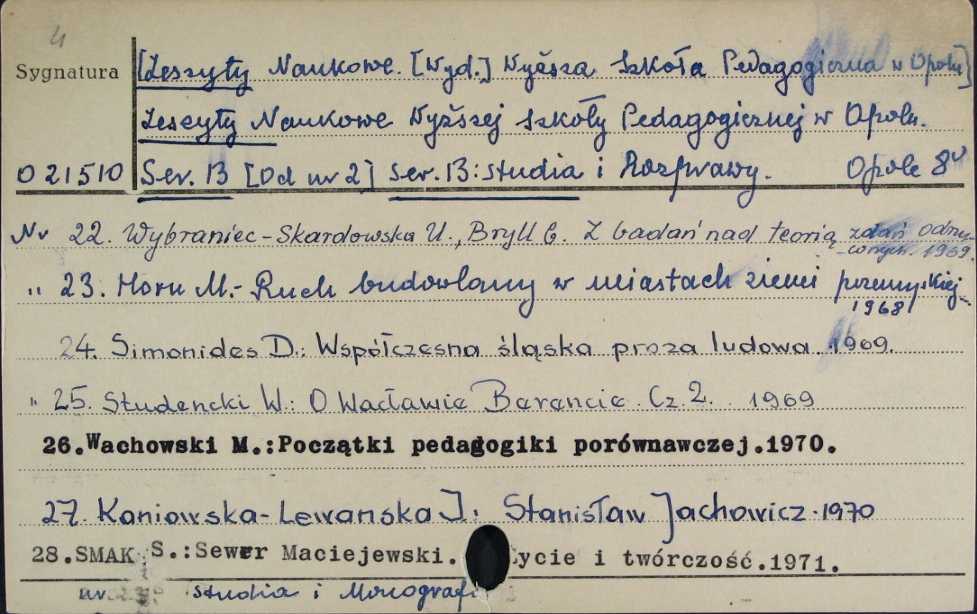 4
Sygnatura [Zeszyty Naukowe. [Wyd.] Wyższa Szkoła Pedagogiczna w Opolu]
Zeszyty Naukowe Wyższej Szkoły Pedagogicznej w Opolu.
O 21510 Ser. B [Od nr 2] Ser. B: Studia i Rozprawy. Opole 8°
Nr 22. Wybraniec-Skardowska U., Bryll G. Z badań nad teorią zdań odrzu-
conych. 1969.
" 23. Horn M.- Ruch budowlany w miastach ziemi przemyskiej
1968
24. Simonides D.: Współczesna śląska proza ludowa. 1969.
" 25. Studencki W.: O Wacławie Berencie. Cz. 2. 1969
26.Wachowski M.:Początki pedagogiki porównawczej.1970.
27. Kaniowska-Lewańska I. Stanisław Jachowicz. 1970
28.SMAK S.:Sewer Maciejewski. Życie i twórczość.1971.
nr studia i Monografi